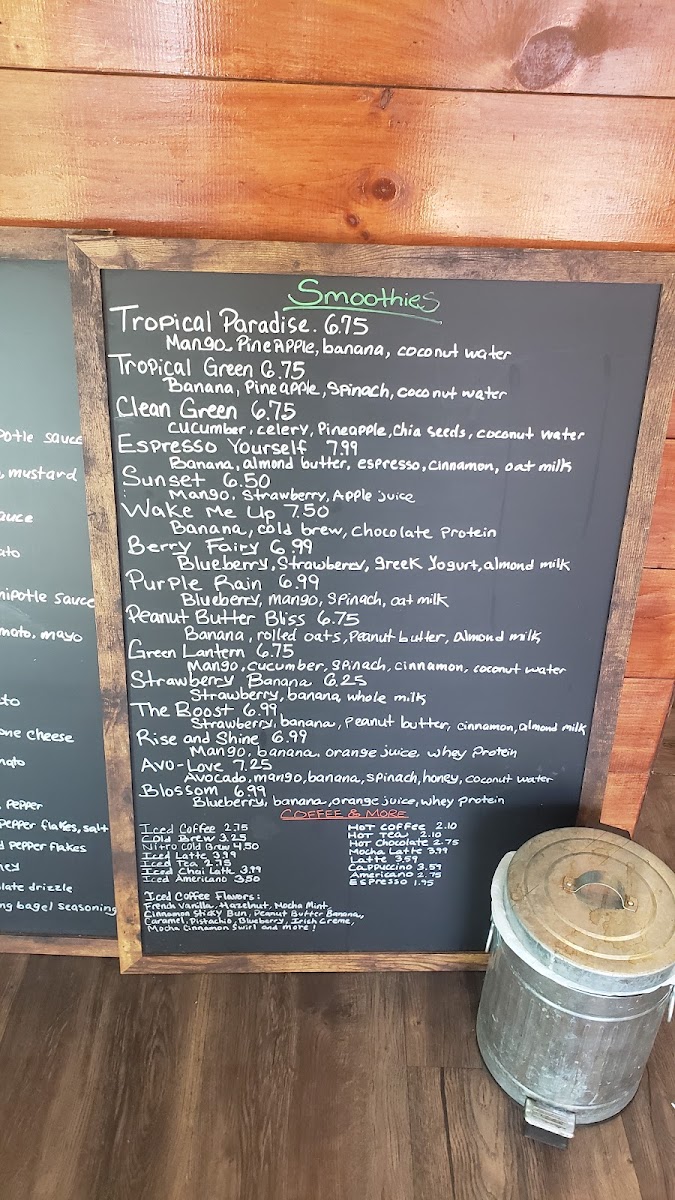 Smoothies
Tropical Paradise. 6.75
Mango, PineApple, banana, coconut water
Tropical Green 6.75
Banana, Pineapple, Spinach, coconut water
Clean Green 6.75
cucumber, celery, Pineapple, Chia seeds, coconut water
Espresso Yourself 7.99
Banana, almond butter, espresso, cinnamon, oat milk
Sunset 6.50
Mango, Strawberry, Apple juice
Wake Me Up 7.50
Banana, cold brew, Chocolate Protein
Berry Fairy 6.99
Blueberry, Strawberry, greek Yogurt, almond milk
Purple Rain 6.99
Blueberry, mango, Spinach, oat milk
Peanut Butter Bliss 6.75
Banana, rolled oats, Peanut butter, almond milk
Green Lantern 6.75
Mango, cucumber, spinach, cinnamon, coconut water
Strawberry Banana 6.25
Strawberry, banana, whole milk
The Boost 6.99
Strawberry, banana, peanut butter, cinnamon, almond milk
Rise and Shine 6.99
Mango, banana, orange juice, whey Protein
Avo-Love 7.25
Avocado, mango, banana, spinach, honey, coconut water
Blossom 6.99
Blueberry, banana, orange juice, whey protein
COFFEE & MORE
Iced Coffee 2.75
Cold Brew 3.25
Nitro Cold Brew 4.50
Iced Latte 3.99
Iced Tea 2.75
Iced Chai Latte 3.99
Iced Americano 3.50
Hot Coffee 2.10
Hot Tea 2.10
Hot Chocolate 2.75
Mocha Latte 3.99
Latte 3.59
Cappuccino 3.59
Americano 2.75
Espresso 1.95
Iced Coffee Flavors:
French Vanilla, Hazelnut, Mocha Mint,
Cinnamon Sticky Bun, Peanut Butter Banana,
Caramel, Pistachio, Blueberry, Irish Creme,
Mocha Cinnamon Swirl and more!
sauce
mustard
sauce
mayo
cheese
pepper
pepper flakes, salt
pepper flakes
drizzle
bagel seasoning